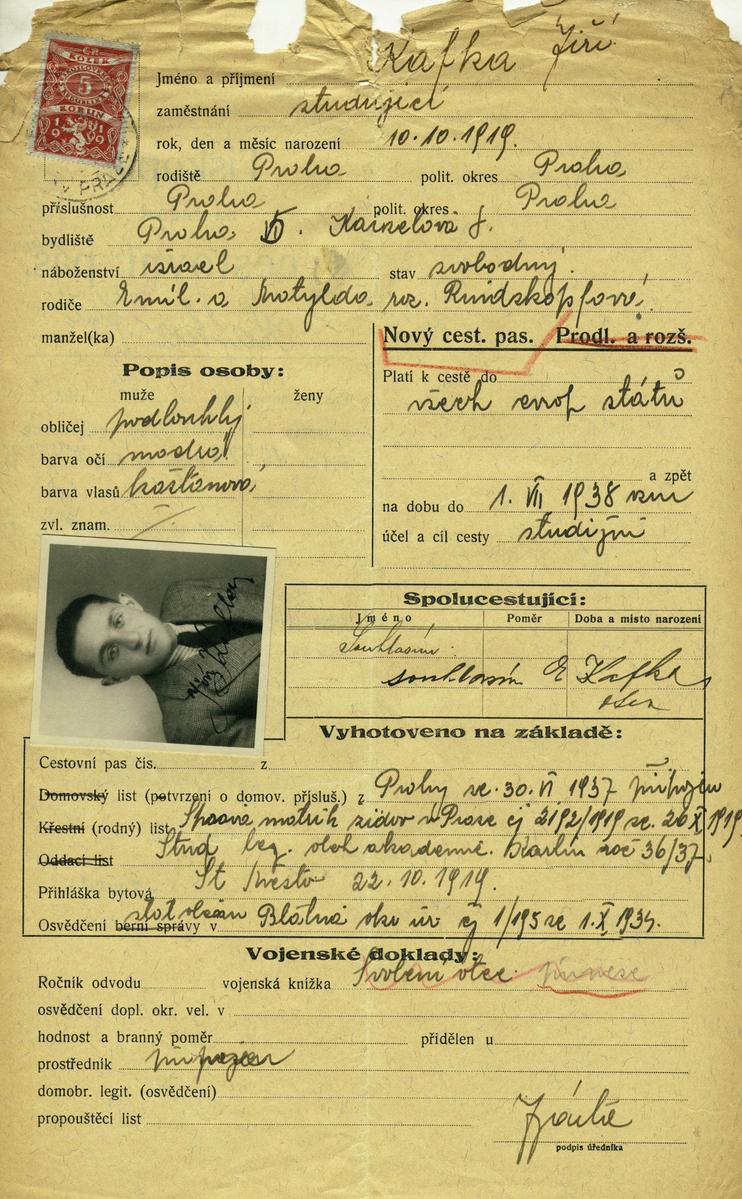 ČR
KOLEK
5
KORUN
1919
Kafka Jiří
Jméno a příjmení
zaměstnání studující
rok, den a měsíc narození 10.10.1919.
rodiště Praha polit. okres Praha
příslušnost Praha polit. okres Praha
bydliště Praha
náboženství israel stav svobodný.
rodiče Emil a Matylda roz.
manžel(ka)
Nový cest. pas. Prodl. a rozš.
Popis osoby:
muže ženy
obličej podlouhlý
barva očí modrá
barva vlasů kaštanová
zvl. znam.
Platí k cestě do
všech evrop států
a zpět
na dobu do 1. VII 1938
účel a cíl cesty studijní
Spolucestující:
Jméno Poměr Doba a místo narození
Souhlasím
souhlasím E Kafka
otec
Vyhotoveno na základě:
Cestovní pas čís. z
Domovský list (potvrzení o domov. přísluš.) z Prahy ze 30. VI 1937
Křestní (rodný) list Správa matrik židov v Praze čj 2192/1919 ze 20 X 1919
Oddací list Stud akademie Karlín 36/37
Přihláška bytová 22.10.1919.
Osvědčení berní správy v Blatná čj 1/195 ze 1.X.1934.
Vojenské doklady:
Ročník odvodu vojenská knížka otce
osvědčení dopl. okr. vel. v
hodnost a branný poměr přidělen u
prostředník
domobr. legit. (osvědčení)
propouštěcí list
podpis úředníka